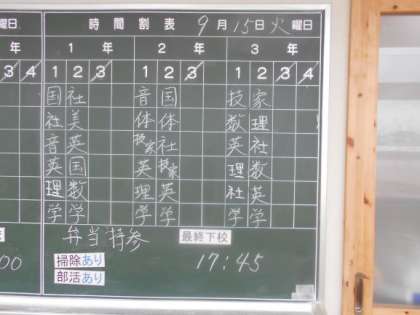 曜日 時間割表 9月15日火曜日
年 1年 2年 3年
3 4 1 2 3 1 2 3 4 1 2 3 4
国 社 音 国 技 家
社 美 体 体 数 理
音 英 技家 社 英 社
英 国 英 技家 理 数
理 数 理 英 社 英
学 学 学 学 学 学
弁当持参 最終下校
00 掃除あり 17:45
部活あり